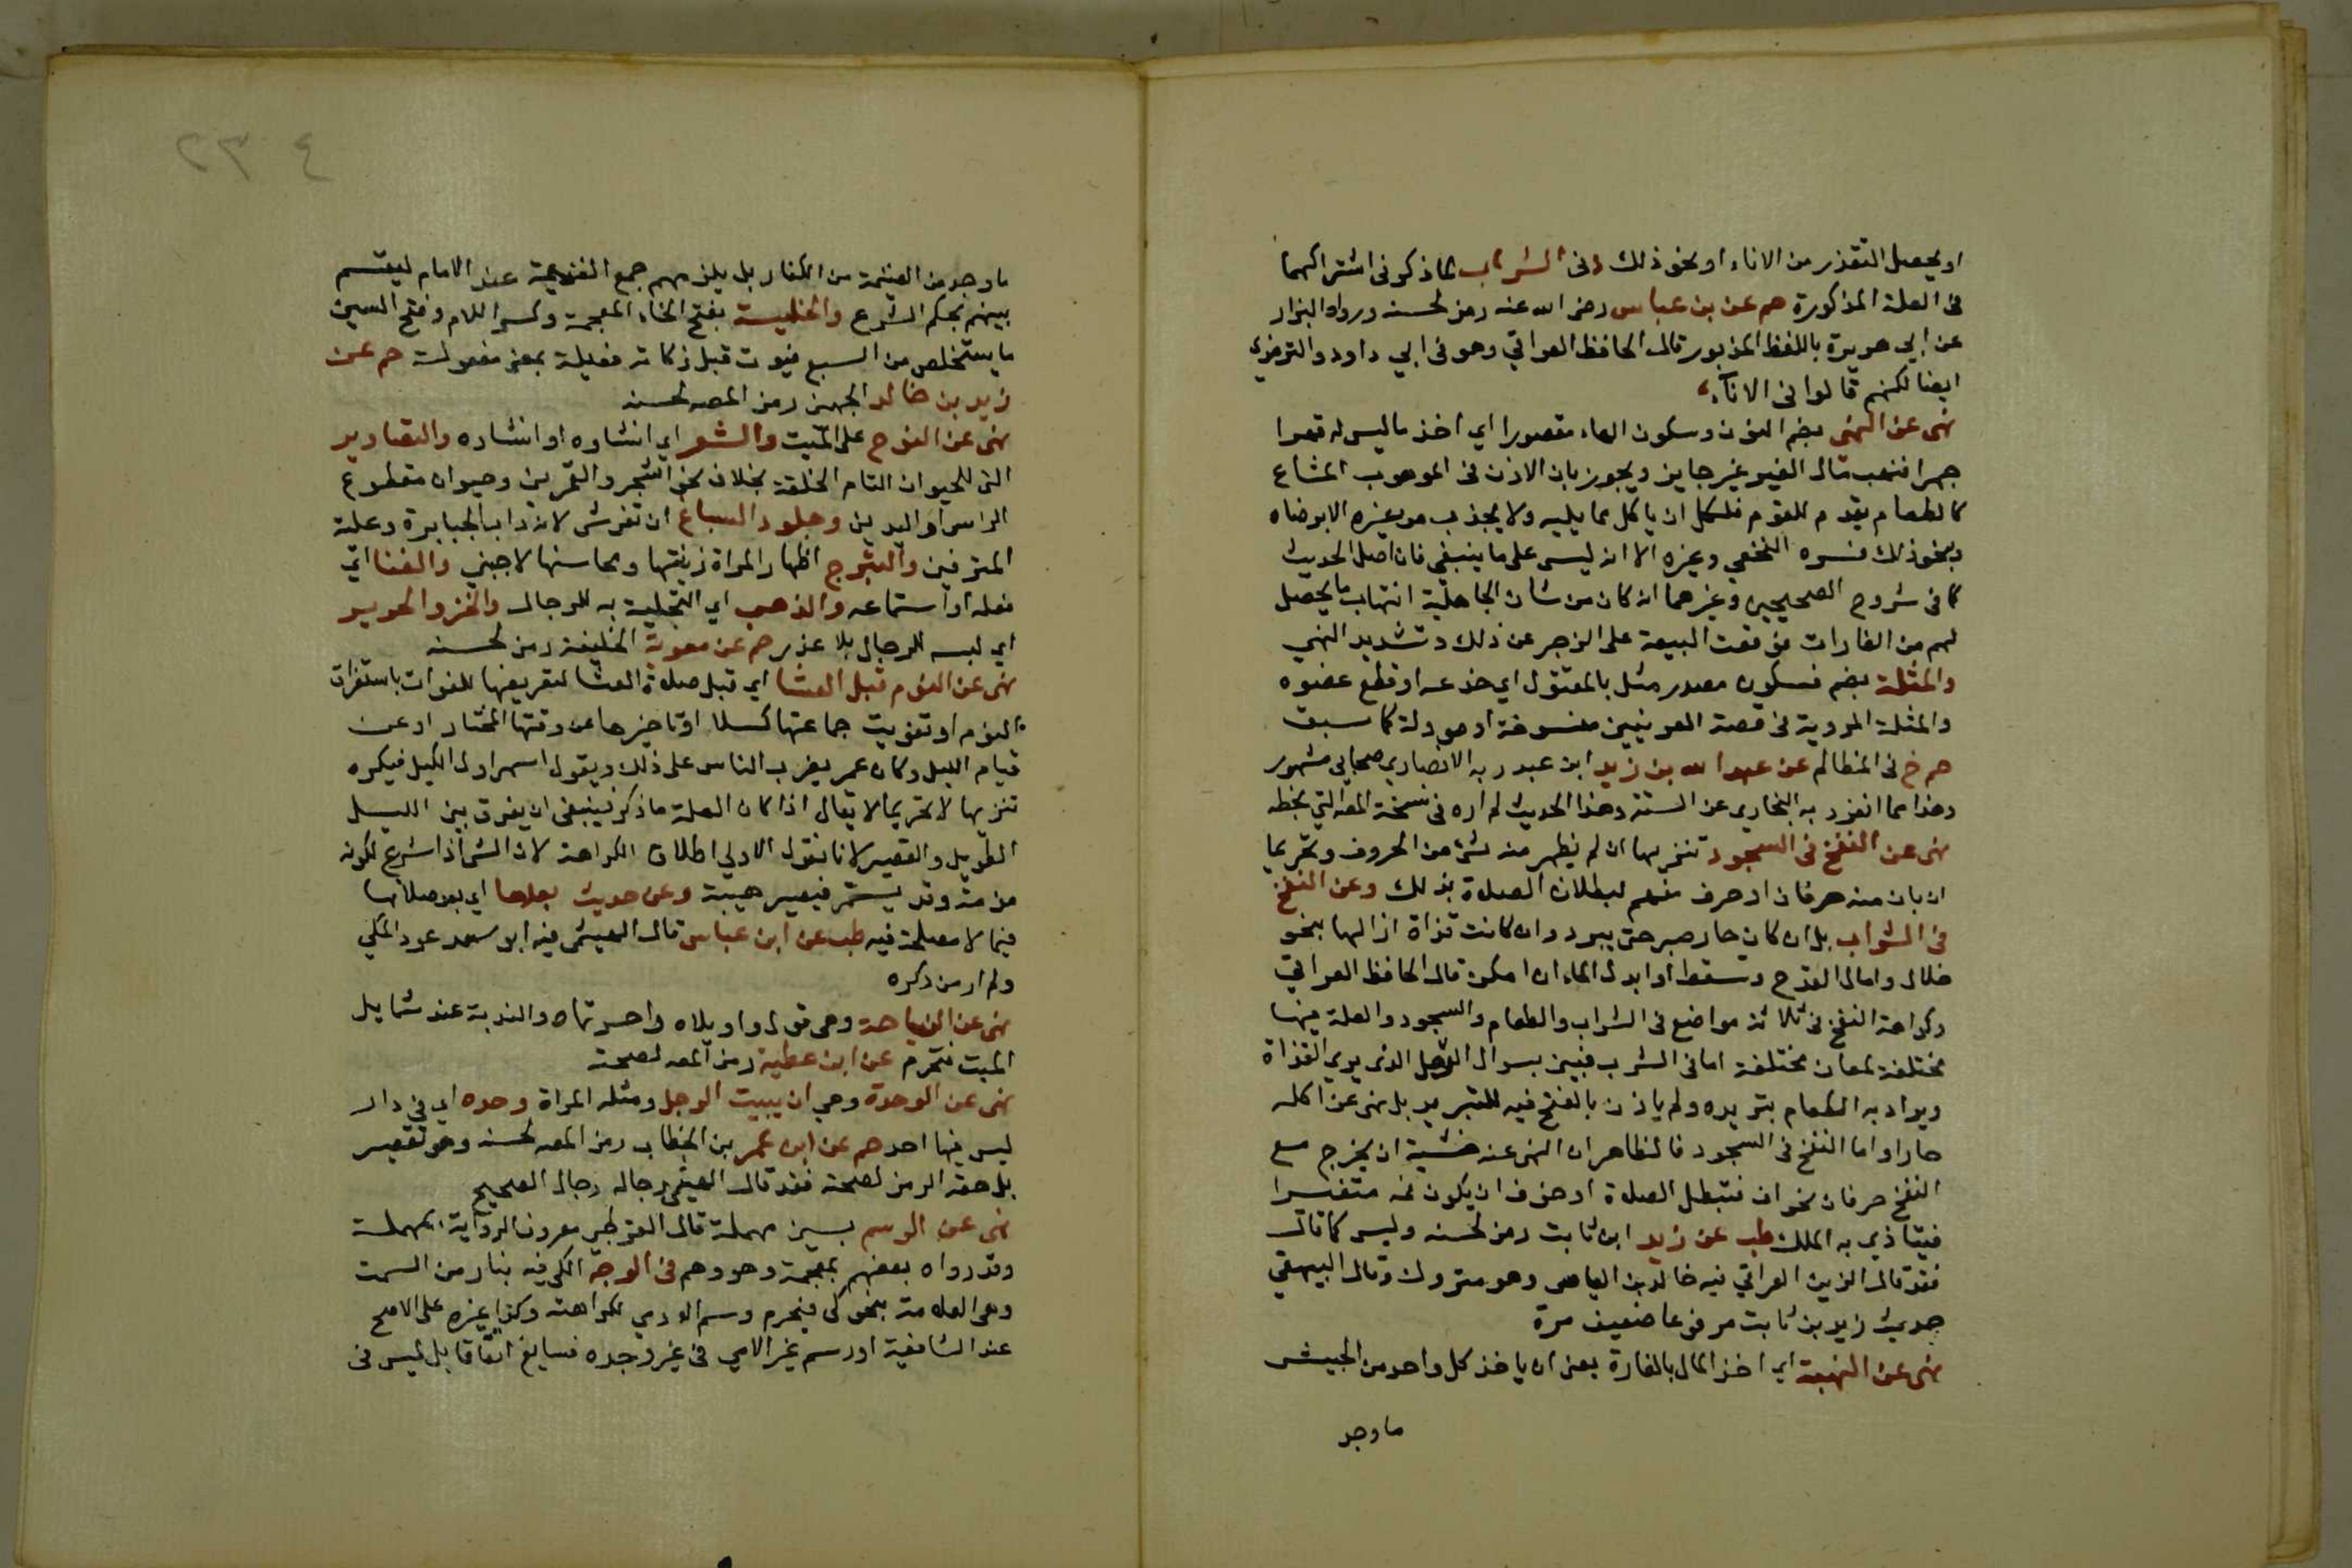 او يحصل التقذر من الاناء او نحو ذلك وفى الشراب لما ذكر فى اشتراكهما
فى العلة المذكورة حم عن بن عباس رضى الله عنه رمز لحسنه ورواه البزار
عن ابي هريرة باللفظ المزبور قال الحافظ العراقي وهو فى ابي داود والترمذي
ايضا لكنهم قالوا فى الاناء
نهى عن النهبى بضم النون وسكون الهاء مقصورا اي اخذ ما ليس له قهرا
جهرا فنهب مال الغير غير جايز ويجوز بان الاذن فى الموهوب المشاع
كالطعام يقدم للقوم فلكل ان ياكل مما يليه ولا يجذب من غيره الا برضاه
وبنحو ذلك فسره النخعي وغيره الا انه ليس على ما ينبغى فان اصل الحديث
كما فى شروح الصحيحين وغيرهما انه كان من شان الجاهلية انتهاب ما يحصل
لهم من الغارات فوقعت البيعة على الزجر عن ذلك وتشديد النهي
والمثلة بضم فسكون مصدر مثل بالمقتول اي جذعه او قطع عضوه
والمثلة المروية فى قصة العرنيين منسوخة او مووله كما سبق
حم خ فى المظالم عن عبد الله بن زيد ابن عبد ربه الانصاري صحابي مشهور
وهذا مما انفرد به البخاري عن الستة وهذا الحديث لم اره فى نسخة المص التي بخطه
نهى عن النفخ فى السجود تنزيها ان لم يظهر منه شى من الحروف وتحريما
ان بان منه حرفان او حرف مفهم لبطلان الصلاة بذلك وعن النفخ
فى الشراب بل ان كان حار صبر حتى يبرد وان كانت قذاة ازالها بنحو
خلال وامال القدح وتسقط او ابدل الماء ان امكن قال الحافظ العراقي
وكراهة النفخ فى ثلاثة مواضع فى الشراب والطعام والسجود والعلة فيها
مختلفة لمعان مختلفة اما فى الشرب فبين بسوال الرجل الذى يري القذاة
ويراد به الطعام بتريده ولم ياذن بالنفخ فيه للتبريد بل نهى عن اكله
حارا واما النفخ فى السجود فالظاهر ان النهى عنه خشية ان يخرج مع
النفخ حرفان نحو اف فتبطل الصلاة او خوف ان يكون فمه متغيرا
فيتاذي به الملك طب عن زيد ابن ثابت رمز لحسنه وليس كما قال
فقد قال الزين العراقي فيه خالد بن الياس وهو متروك وقال البيهقي
حديث زيد بن ثابت مرفوعا ضعيف مرة
نهى عن النهبة اي اخذ المال بالغارة يعنى ان ياخذ كل واحد من الجيش
ما وجد
٢٣٤
ما وجد من الغنيمة من الكفار بل يلزمهم جمع الغنيمة عند الامام ليقسم
بينهم بحكم الشرع والخليسة بفتح الخاء المعجمة وكسر اللام وفتح السين
ما يستخلص من السبع فيموت قبل زكاته فعيلة بمعنى مفعولة حم عن
زيد بن خالد الجهنى رمز المص لحسنه
نهى عن النوح على الميت والشعر اي انشاوه او انشاده والتصاوير
التى للحيوان التام الخلقة بخلاف نحو الشجر والقمرين وحيوان مقطوع
الراس او اليدين وجلود السباع ان تفرش لانه داب الجبابرة وعلة
المترفين والتبرج اظهار المراة زينتها ومحاسنها لاجنبي والغنا اي
فعله او استماعه والذهب اي التحلية به للرجال والخز والحرير
اي لبسه للرجال بلا عذر حم عن معوية الخليفة رمز لحسنه
نهى عن النوم قبل العشا اي قبل صلاة العشا لتعريضها للفوات باستغراق
النوم او تفويت جماعتها كسلا او تاخيرها عن وقتها المختار او عن
قيام الليل وكان عمر يضرب الناس على ذلك ويقول اسهر اول الليل فيكره
تنزيها لا تحريما لا يقال اذا كان العلة ما ذكر فينبغى ان يفرق بين الليل
الطويل والقصير لانا نقول الاولي اطلاق الكراهة لان الشى اذا شرع لكونه
من مثه وقد يستمر فيصير هيبة وعن حديث بعدها اي بعد صلاتها
فيما لا مصلحة فيه طب عن ابن عباس قال الهيثمى فيه ابو سعد عود المكي
ولم ار من ذكره
نهى عن النياحة وهى قول واويلاه واحسرتاه والندبة عند شمايل
الميت فتحرم عن ابن عطية رمز المص لصحته
نهى عن الوحدة وهي ان يبيت الرجل ومثله المراة وحده اي في دار
ليس فيها احد حم عن ابن عمر بن الخطاب رمز المص لحسنه وهو تقصير
بل حقه الرمز لصحته فقد قال الهيثمى رجاله رجال الصحيح
نهى عن الوسم بسين مهملة قال القرطبي معروف الرواية بمهملة
وقد رواه بعضهم بمعجمة وهو وهم فى الوجه الكى فيه بنار من السمت
وهى العلامة بنحو كى فيحرم وسم الادمي لكراهته وكذا غيره على الاصح
عند الشافعية او وسم غير الادمي فى غير وجهه فسايغ اتفاقا بل ليس فى